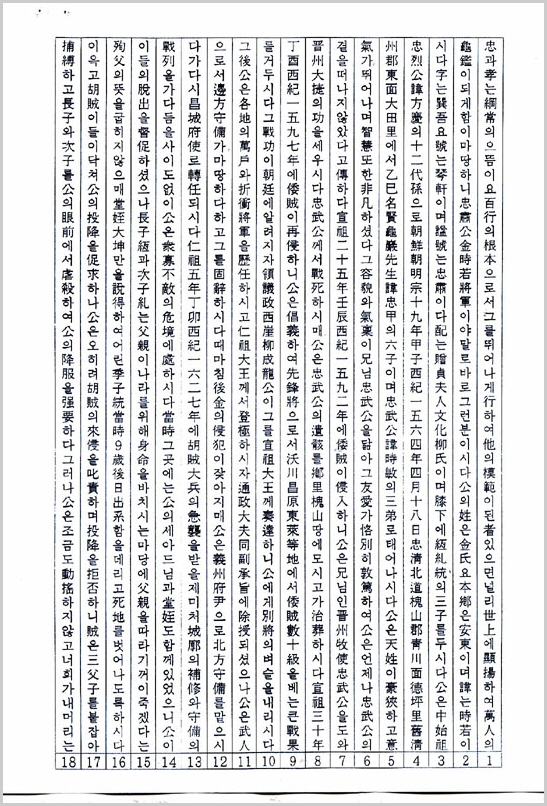 忠과孝는綱常의으뜸이요百行의根本으로서그를뛰어나게行하여他의模範이된者있으면널리世上에顯揚하여萬人의
龜鑑이되게함이마땅하니忠肅公金時若將軍이야말로바로그런분이시다公의姓은金氏요本鄕은安東이며諱는時若이
시다字는巽吾요號는琴軒이며諡號는忠肅이다配는贈貞夫人文化柳氏이며膝下에緪糺統의三子를두시다公은中始祖
忠烈公諱方慶의十二代孫으로朝鮮明宗十九年甲子西紀一五六四年四月十八日忠淸北道槐山郡靑川面德坪里舊淸
州郡東面大田里에서乙巳名賢龜巖先生諱忠甲의六子이며忠武公諱時敏의三弟로태어나시다公은天姓이豪俠하고意
氣가뛰어나며智慧또한非凡하셨다그容貌와氣稟이兄님忠武公을닮아그友愛가恪別히敦篤하여公은언제나忠武公의
곁을떠나지않았다고傳하다宣祖二十五年壬辰西紀一五九二年에倭賊이侵入하니公은兄님인晋州牧使忠武公을도와
晋州大捷의功을세우시다忠武公께서戰死하시매公은忠武公의遺骸를鄕里槐山땅에모시고가治葬하시다宣祖三十年
丁酉西紀一五九七年에倭賊이再侵하니公은倡義하여先鋒將으로서沃川昌原東萊等地에서倭賊數十級을베는큰戰果
를거두시다그戰功이朝廷에알려지자領議政西崖柳成龍公이그를宣祖大王께奏達하니公에게別將의벼슬을내리시다
그後公은各地의萬戶와折衝將軍을歷任하시고仁祖大王께서登極하시자通政大夫同副承旨에除授되셨으나公은武人
으로서邊方守備가마땅하다하고그를固辭하시다때마침後金의侵犯이잦아지매公은義州府尹으로北方守備를맡으시
다가다시昌城府使로轉任되시다仁祖五年丁卯西紀一六二七年에胡賊大兵의急襲을받을제미처城廓의補修와守備의
戰列을가다듬을사이도없이公은衆寡不敵의危境에處하시다當時그곳에는公의세아드님과堂姪도함께있었으니公이
이들의脫出을督促하셨으나長子緪과次子糺는父親이나라를위해身命을바치시는마당에父親을따라기꺼이죽겠다는
殉父의뜻을굽히지않으매堂姪大坤만을說得하여어린季子統當時9歲後日出系함을데리고死地를벗어나도록하시다
이윽고胡賊이들이닥쳐公의投降을促求하나公은오히려胡賊의來侵을叱責하며投降을拒否하니賊은三父子를붙잡아
捕縛하고長子와次子를公의眼前에서虐殺하여公의降服을强要하다그러나公은조금도動搖하지않고너희가내머리는
18 17 16 15 14 13 12 11 10 9 8 7 6 5 4 3 2 1